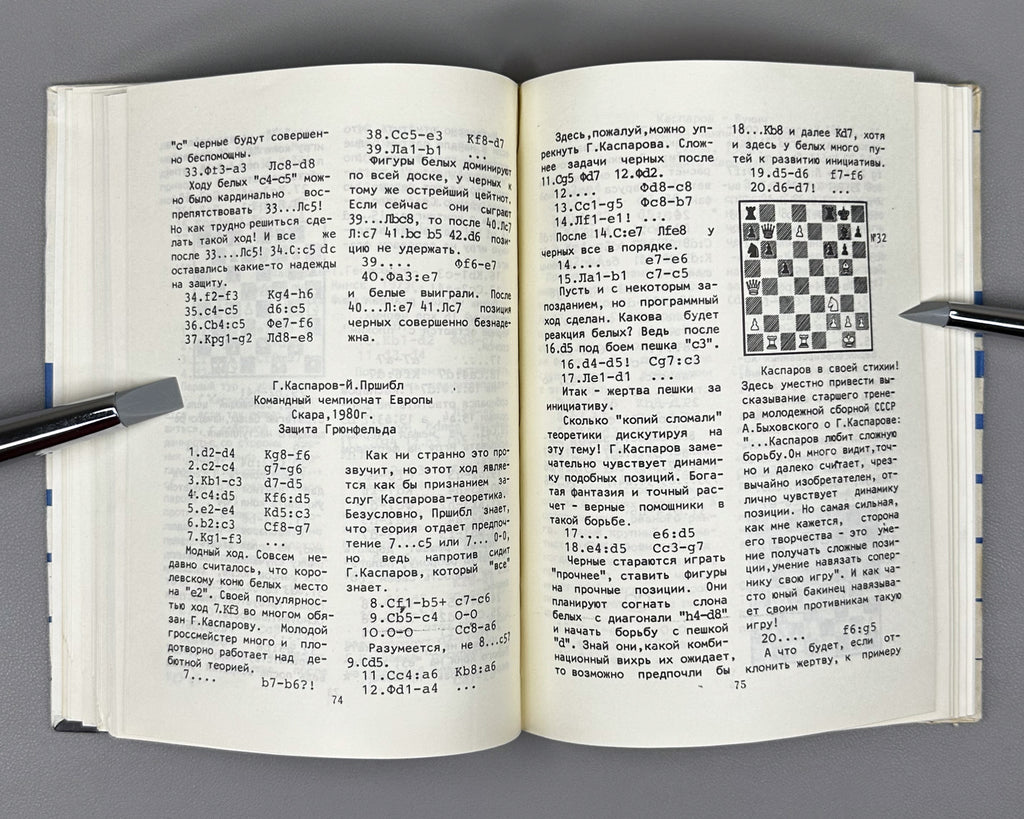 "с" черные будут совершен-
но беспомощны.
33.Фf3-a3 Лс8-d8
Ходу белых "с4-с5" мож-
но было кардинально вос-
препятствовать 33...Лс5!
Но как трудно решиться сде-
лать такой ход! И все же
после 33....Лс5! 34.С:с5 dc
оставались какие-то надежды
на защиту.
34.f2-f3 Kg4-h6
35.c4-c5 d6:c5
36.Cb4:c5 Фe7-f6
37.Kpg1-g2 Лd8-e8
38.Cc5-e3 Kf8-d7
39.Ла1-b1 ...
Фигуры белых доминируют
по всей доске, у черных к
тому же острейший цейтнот.
Если сейчас они сыграют
39...Лbc8, то после 40.Лc7
Л:c7 41.bc b5 42.d6 пози-
цию не удержать.
39.... Фf6-e7
40.Фа3:e7
и белые выиграли. После
40...Л:e7 41.Лc7 позиция
черных совершенно безнаде-
жна.
Г.Каспаров-Й.Пршибл
Командный чемпионат Европы
Скара,1980г.
Защита Грюнфельда
1.d2-d4 Kg8-f6
2.c2-c4 g7-g6
3.Kb1-c3 d7-d5
4.c4:d5 Kf6:d5
5.e2-e4 Kd5:c3
6.b2:c3 Cf8-g7
7.Kg1-f3 ...
Модный ход. Совсем не-
давно считалось, что коро-
левскому коню белых место
на "е2". Своей популярнос-
тью ход 7.Kf3 во многом обя-
зан Г.Каспарову. Молодой
гроссмейстер много и пло-
дотворно работает над де-
бютной теорией.
7.... b7-b6?!
Как ни странно это про-
звучит, но этот ход явля-
тся как бы признанием за-
слуг Каспарова-теоретика.
Безусловно, Пршибл знает,
что теория отдает предпоч-
тение 7...c5 или 7... 0-0,
но ведь напротив сидит
Г.Каспаров, который "все"
знает.
8.Cf1-b5+ c7-c6
9.Cb5-c4 O-O
10.O-O Cc8-a6
Разумеется, не 8...c5?
9.Cd5.
11.Cc4:a6 Kb8:a6
12.Фd1-a4 ...
74
Здесь,пожалуй,можно уп-
рекнуть Г.Каспарова. Слож-
нее задачи черных после
11.Cg5 Фd7 12.Фd2.
12.... Фd8-c8
13.Cc1-g5 Фc8-b7
14.Лf1-e1! ...
После 14.C:e7 Лfe8 у
черных все в порядке.
14.... e7-e6
15.Ла1-b1 c7-c5
Пусть и с некоторым за-
позданием, но программный
ход сделан. Какова будет
реакция белых? Ведь после
16.d5 под боем пешка "с3".
16.d4-d5! Cg7:c3
17.Лe1-d1 ...
Итак - жертва пешки за
инициативу.
Сколько "копий сломали"
теоретики дискутируя на
эту тему! Г.Каспаров заме-
чательно чувствует динами-
ку подобных позиций. Бога-
тая фантазия и точный рас-
чет - верные помощники в
такой борьбе.
17.... e6:d5
18.e4:d5 Cc3-g7
Черные стараются играть
"прочнее", ставить фигуры
на прочные позиции. Они
планируют согнать слона
белых с диагонали "h4-d8"
и начать борьбу с пешкой
"d". Знай они,какой комби-
национный вихрь их ожидает,
то возможно предпочли бы
18...Kb8 и далее Kd7, хотя
и здесь у белых много пу-
тей к развитию инициативы.
19.d5-d6 f7-f6
20.d6-d7! ...
№32
Каспаров в своей стихии!
Здесь уместно привести вы-
сказывание старшего трене-
ра молодежной сборной СССР
А.Быховского о Г.Каспарове:
"...Каспаров любит сложную
борьбу.Он много видит,точ-
но и далеко считает, чрез-
вычайно изобретателен, от-
лично чувствует динамику
позиции. Но самая сильная,
как мне кажется, сторона
его творчества - это уме-
ние получать сложные пози-
ции,умение навязать сопер-
нику свою игру". И как ча-
сто юный бакинец навязыва-
ет своим противникам такую
игру!
20.... f6:g5
А что будет, если от-
клонить жертву, к примеру
75